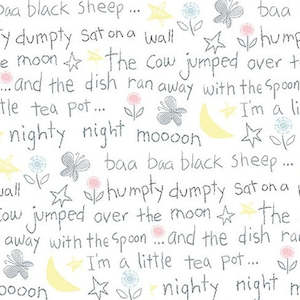 baa black sheep ... baa
y dumpty sat on a wall humpty
the moon The Cow jumped over
...and the dish ran away with the spoon
little tea pot... I'm a l
nighty night moooon
baa baa black sheep...
wall humpty dumpty sat on a
Cow jumped over the moon The
away with the spoon ...and the dish ran
I'm a little tea pot...
n nighty night